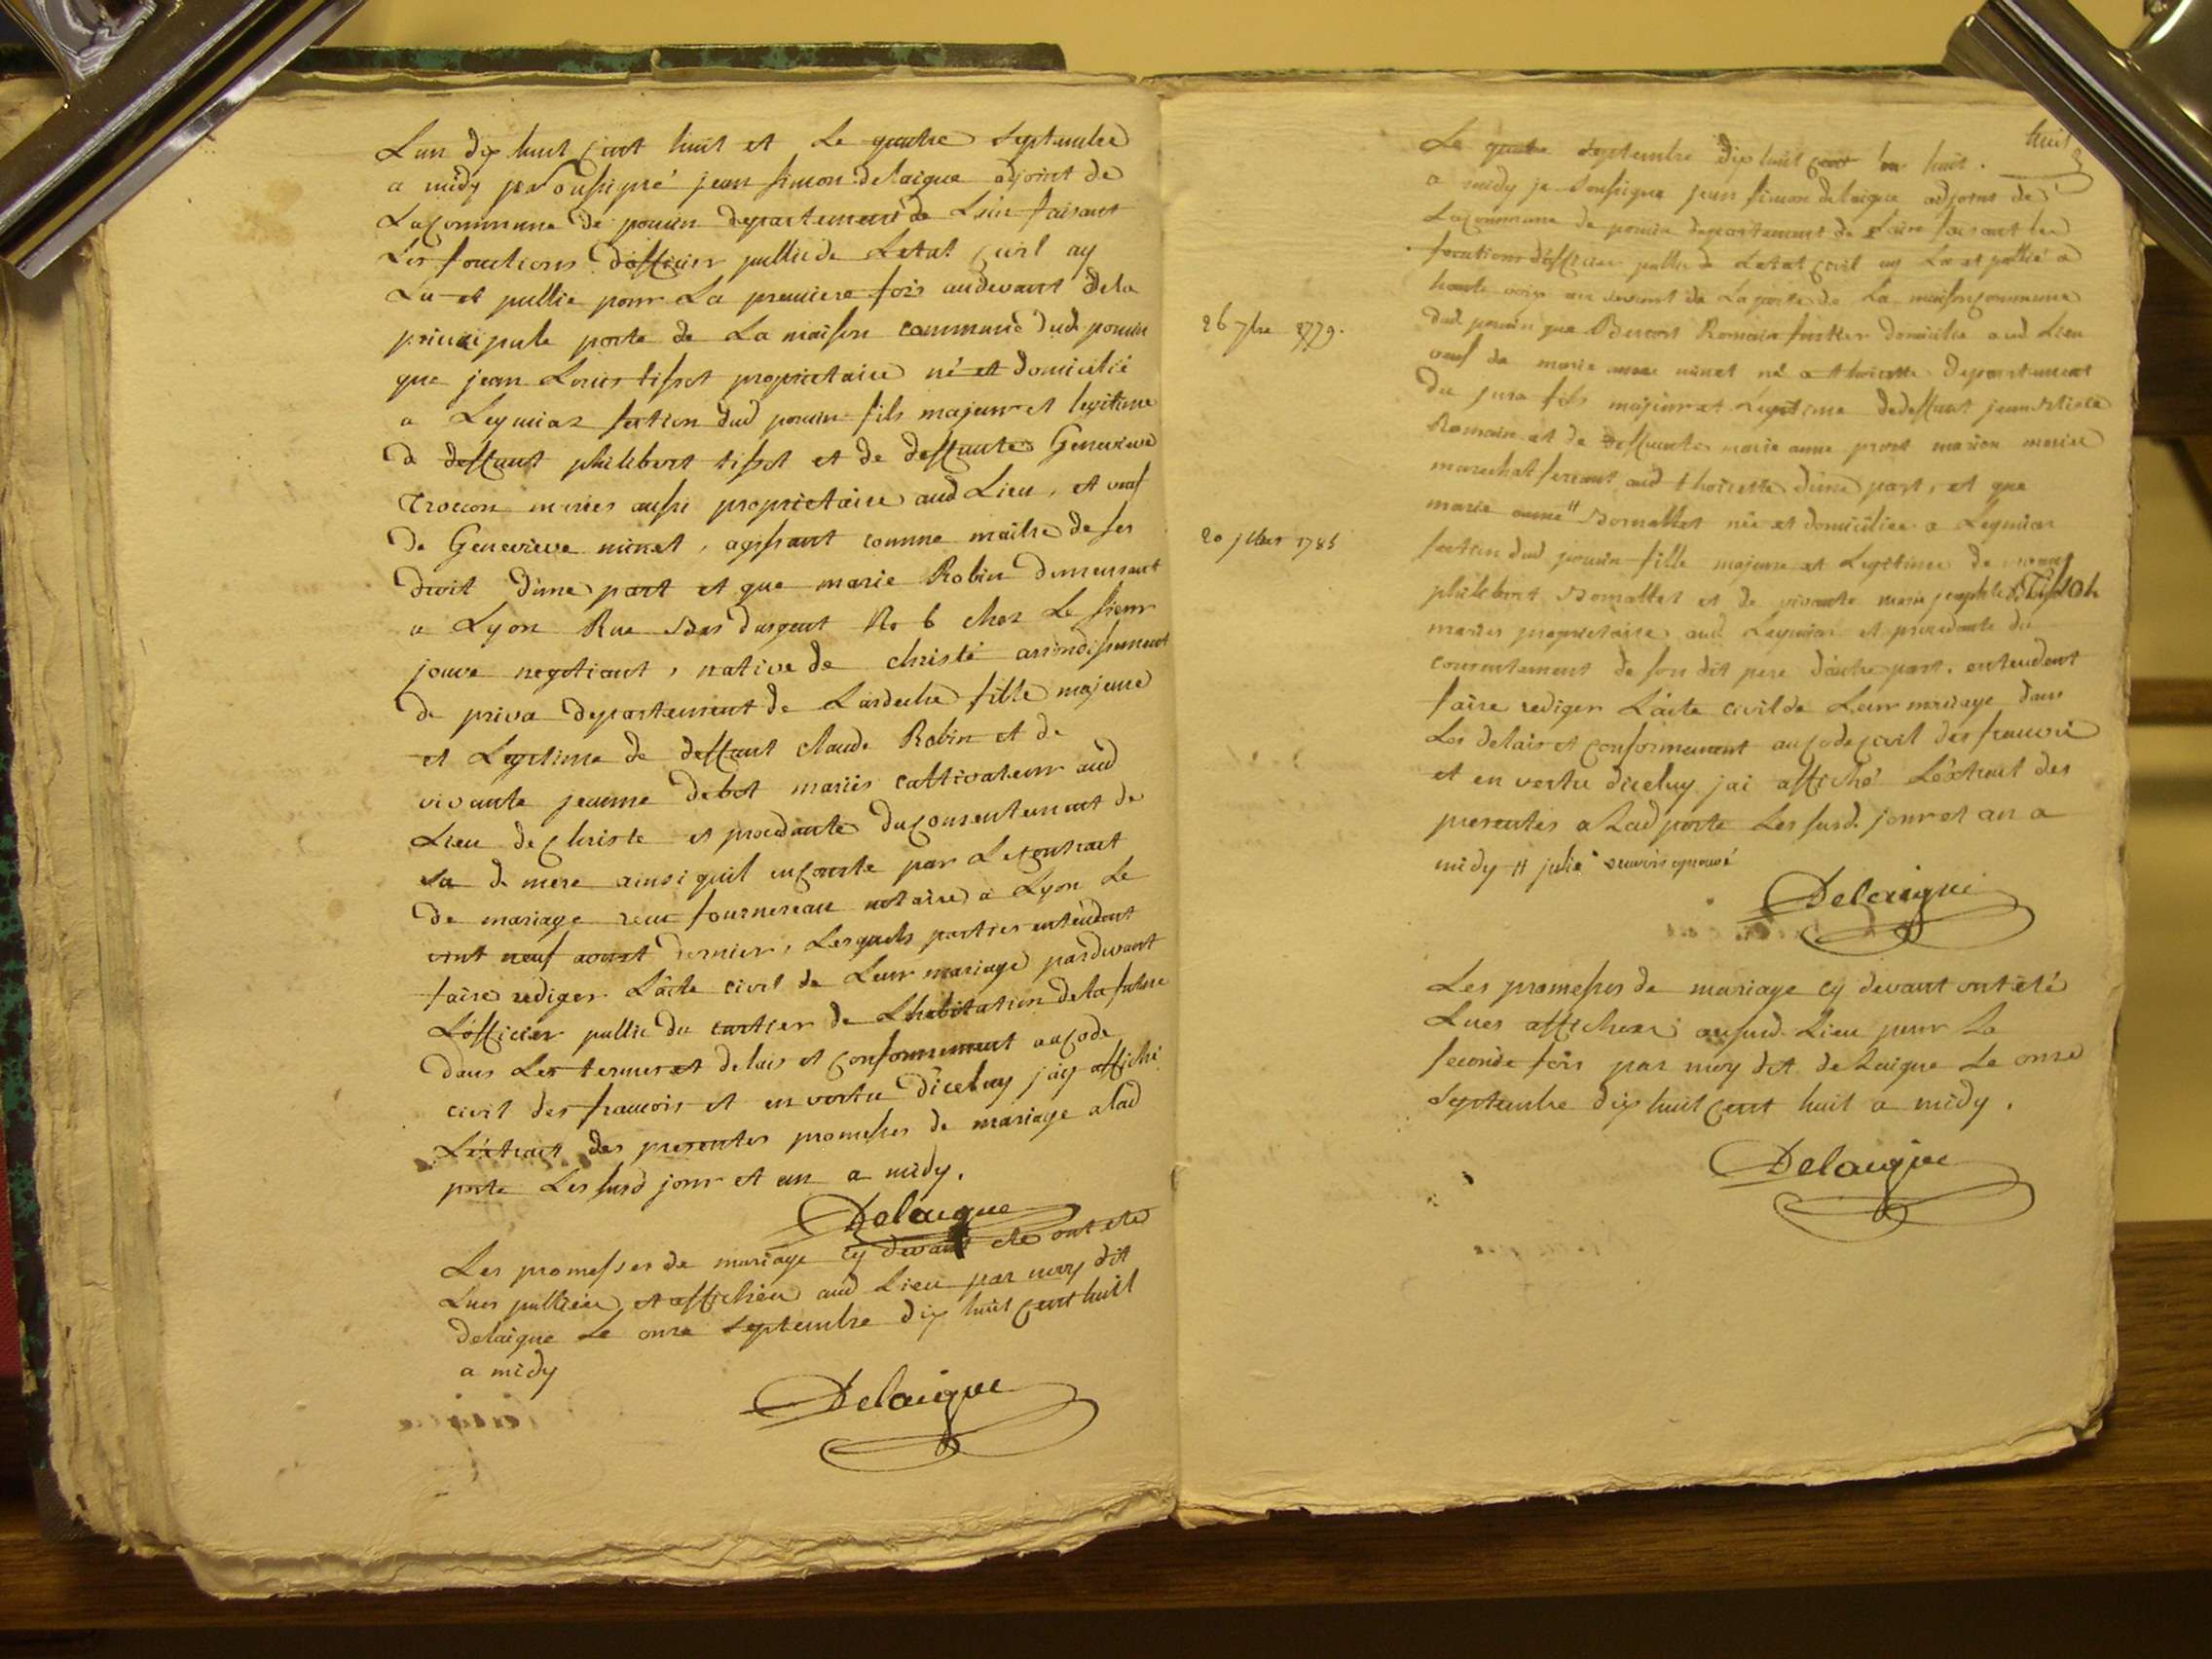 Lan dix huit cent huit et Le quatre septembre
a midy je soussigné jean simon delaigue adjoint de
La commune de poncin departement de Lain faisant
Les fonctions dofficier public de Letat civil ay
Lu et publie pour La premiere fois audevant dela
principale porte de La maison commune dud poncin
que jean Louis tissot proprietaire né et domicilié
a Leymiaz section dud poncin fils majeur et legitime
de deffunt philibert tissot et de deffunte Genevieve
mariés aussi proprietaire aud Lieu, et veuf
de Genevieve minet, agissant comme maitre de ses
droit d'une part et que marie Robin demeurant
a Lyon Rue Bas dargent No 6 chez Le sieur
jouve negotiant, native de christé arrondissement
de priva departement de Lardeche fille majeure
et Legitime de deffunt claude Robin et de
vivante jeanne debot mariés cultivateur aud
Lieu de christe et procedante du consentement de
sa d. mere ainsi quil en conste par Le contrait
de mariage recu fournereau notaire a Lyon Le
vint neuf aoust dernier, Lesquels parties entendent
faire rediger Lacte civil de Leur mariage pardevant
L'officier public du cartier de Lhabitation dela future
dans Les termes et delais et conformement au code
civil des francois et en vertu diceluy j'ay affiché
L'éxtrait des presentes promesses de mariage alad
porte Les susd jour et an a midy.
Delaigue
Les promesses de mariage cy devant ont ete
Lues publiées et affichées aud Lieu par moy dit
delaigue Le onze septembre dix huit cent huit
a midy
Delaigue
huit
Le quatre septembre dix huit cent huit.
a midy je soussigné jean simon delaigue adjoint de
La commune de poncin departement de Lain faisant les
fonctions dofficier public de Letat civil ay Lu et publié a
haute voix au devant de La porte de La maison commune
26 7bre 1779.
dud poncin que Benoit Romain domicilie aud Lieu
veuf de marie anne minet né a thoirette departement
du jura fils majeur et legitime dedeffunt jean
Romain et de deffunte marie anne mariés
marechal ferrant aud thoirette d'une part, et que
marie anne " née et domiciliée a Leymiaz
20 1785
section dud poncin fille majeure et Legitime de vivant
philibert et de vivante marie josephte Tissot
mariés proprietaire aud Leymiaz et procedante du
consentement de son dit pere d'autre part, entendent
faire rediger L'acte civil de Leur mariage dans
Les delais et conformement au code civil des francois
et en vertu diceluy jai affiché L'éxtrait des
presentes a Lad porte Les susd. jour et an a
midy " julie
Delaigue
Les promesses de mariage cy devant ont été
Lues affichées ausud. Lieu pour La
seconde fois par moy dit delaigue Le onze
septembre dix huit cent huit a midy.
Delaigue